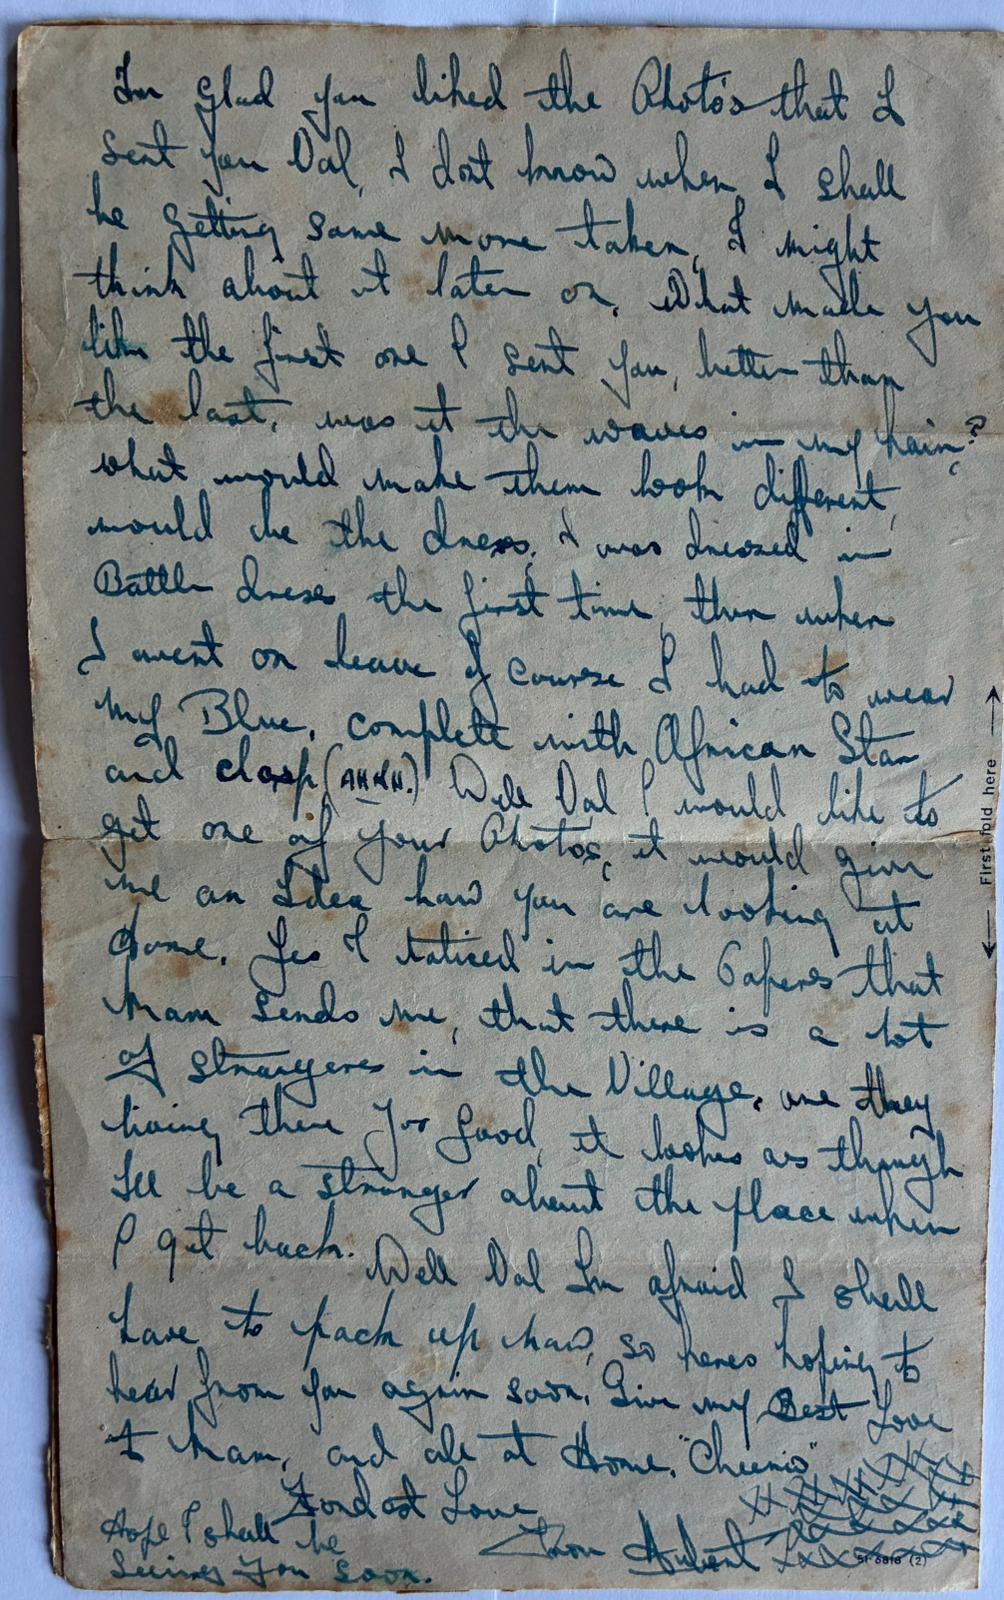 Im glad you liked the Photo's that I
sent you Val, I dont know when I shall
be getting some more taken, I might
think about it later on, What made you
like the first one I sent you, better than
the last, was it the waves in my hair?
what would make them look different,
would be the dress, I was dressed in
Battle dress the first time, then when
I went on leave of course I had to wear
my Blue, complete with African Star
and clasp Well Val I would like to
get one of your Photos, it would give
me an Idea how you are looking at
Home. Yes I noticed in the Papers that
Mam sends me, that there is a lot
of strangers in the Village, are they
living there for good, it looks as though
Ill be a stranger about the place when
I get back.
Well Val Im afraid I shall
have to pack up now, so heres hoping to
hear from you again soon. Give my Best Love
to Mam, and all at Home. "Cheerio"
Fondest Love
From Hubert
Hope I shall be
Seeing You Soon.
First fold here
51-6818 (2)